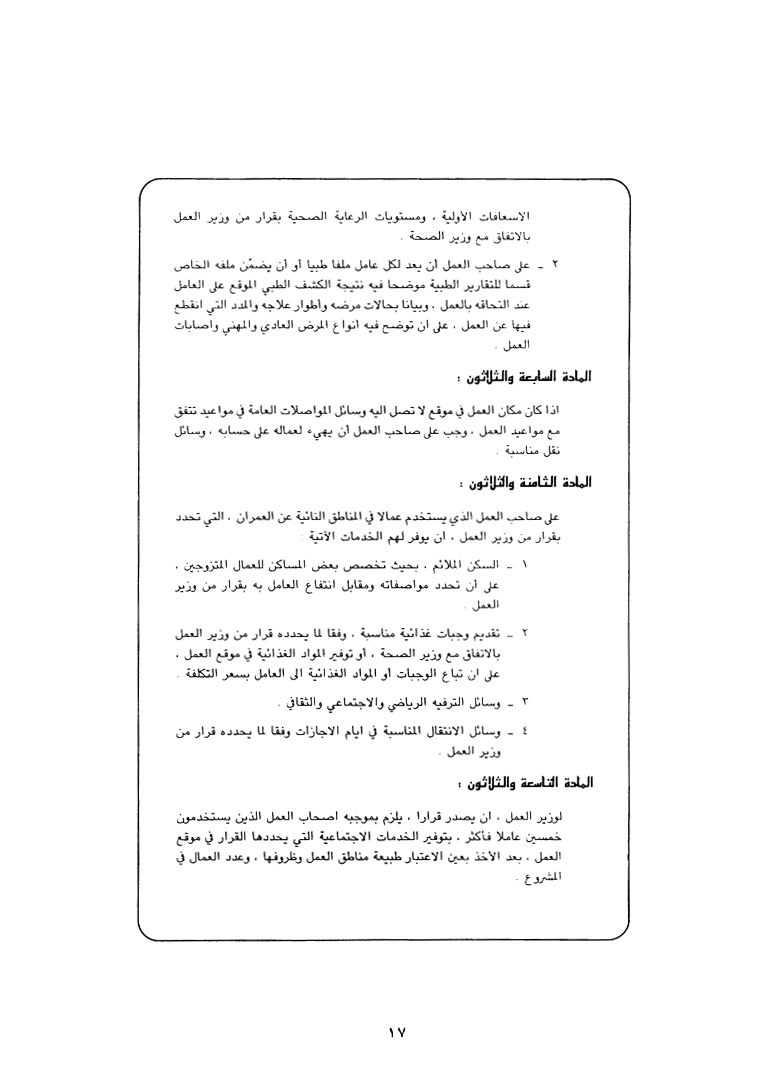 الاسعافات الأولية ، ومستويات الرعاية الصحية بقرار من وزير العمل
بالاتفاق مع وزير الصحة .
٢ ـ على صاحب العمل أن يعد لكل عامل ملفا طبيا أو أن يضمّن ملفه الخاص
قسما للتقارير الطبية موضحا فيه نتيجة الكشف الطبي الموقع على العامل
عند التحاقه بالعمل ، وبيانا بحالات مرضه وأطوار علاجه والمدد التي انقطع
فيها عن العمل ، على ان توضح فيه أنواع المرض العادي والمهني واصابات
العمل .
المادة السابعة والثلاثون :
اذا كان مكان العمل في موقع لا تصل اليه وسائل المواصلات العامة في مواعيد تتفق
مع مواعيد العمل ، وجب على صاحب العمل أن يهيء لعماله على حسابه ، وسائل
نقل مناسبة .
المادة الثامنة والثلاثون :
على صاحب العمل الذي يستخدم عمالا في المناطق النائية عن العمران ، التي تحدد
بقرار من وزير العمل ، ان يوفر لهم الخدمات الآتية :
١ ـ السكن الملائم ، بحيث تخصص بعض المساكن للعمال المتزوجين ،
على ان تحدد مواصفاته ومقابل انتفاع العامل به بقرار من وزير
العمل .
٢ ـ تقديم وجبات غذائية مناسبة ، وفقا لما يحدده قرار من وزير العمل
بالاتفاق مع وزير الصحة ، أو توفير المواد الغذائية في موقع العمل ،
على ان تباع الوجبات أو المواد الغذائية الى العامل بسعر التكلفة .
٣ ـ وسائل الترفيه الرياضي والاجتماعي والثقافي .
٤ ـ وسائل الانتقال المناسبة في ايام الاجازات وفقا لما يحدده قرار من
وزير العمل .
المادة التاسعة والثلاثون :
لوزير العمل ، ان يصدر قرارا ، يلزم بموجبه اصحاب العمل الذين يستخدمون
خمسين عاملا فأكثر ، بتوفير الخدمات الاجتماعية التي يحددها القرار في موقع
العمل ، بعد الأخذ بعين الاعتبار طبيعة مناطق العمل وظروفها ، وعدد العمال في
المشروع .
١٧